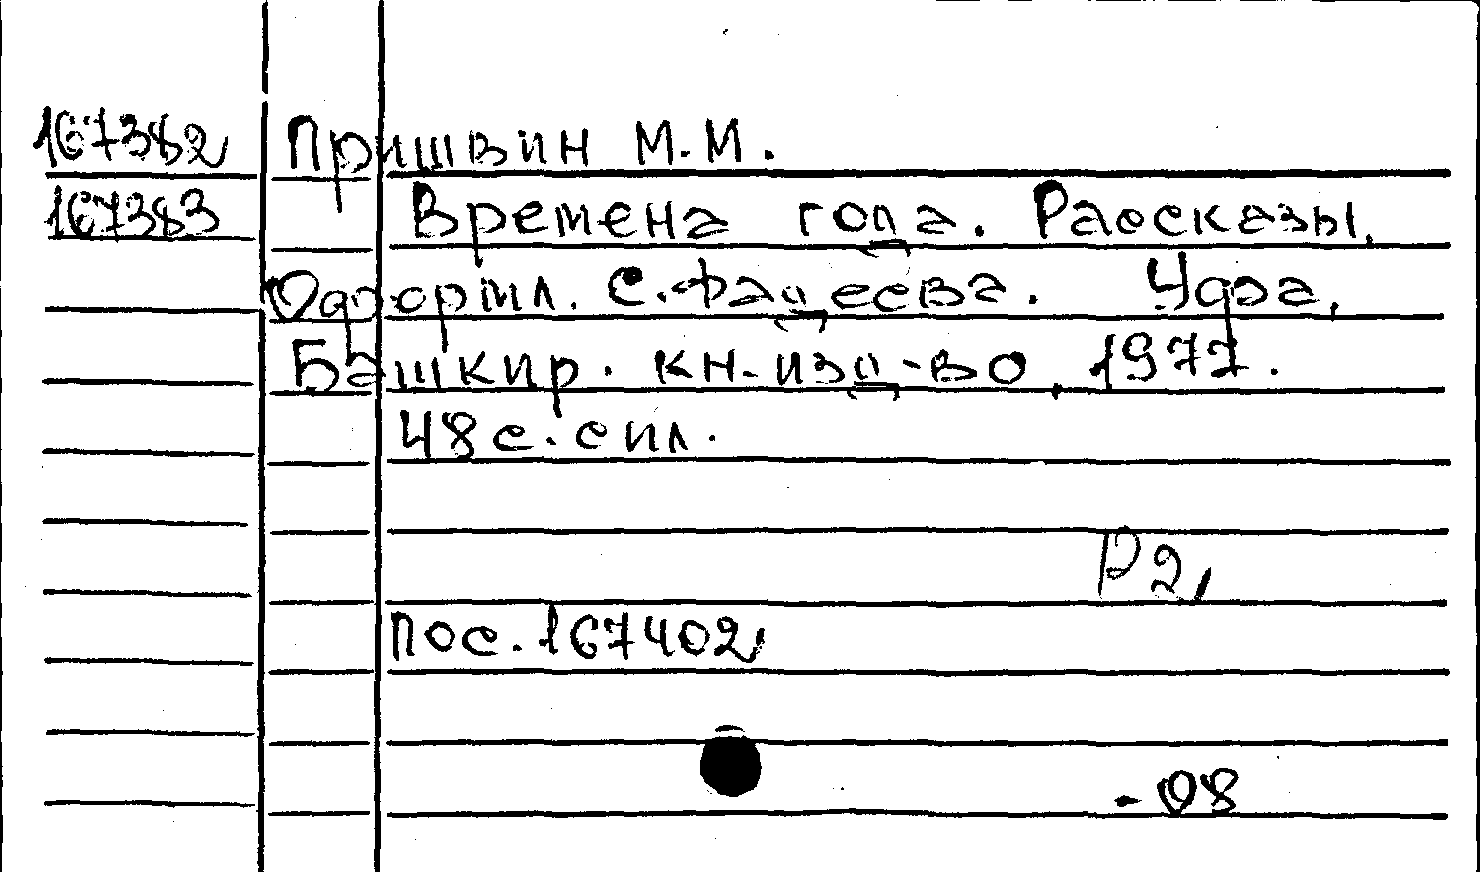 167382 Пришвин М.М.
167383 Времена года. Рассказы.
Оформл. С.Фадеева. Уфа,
Башкир. кн.-изд-во, 1977.
48 с. с ил.
Р2
пос. 167402
- 08